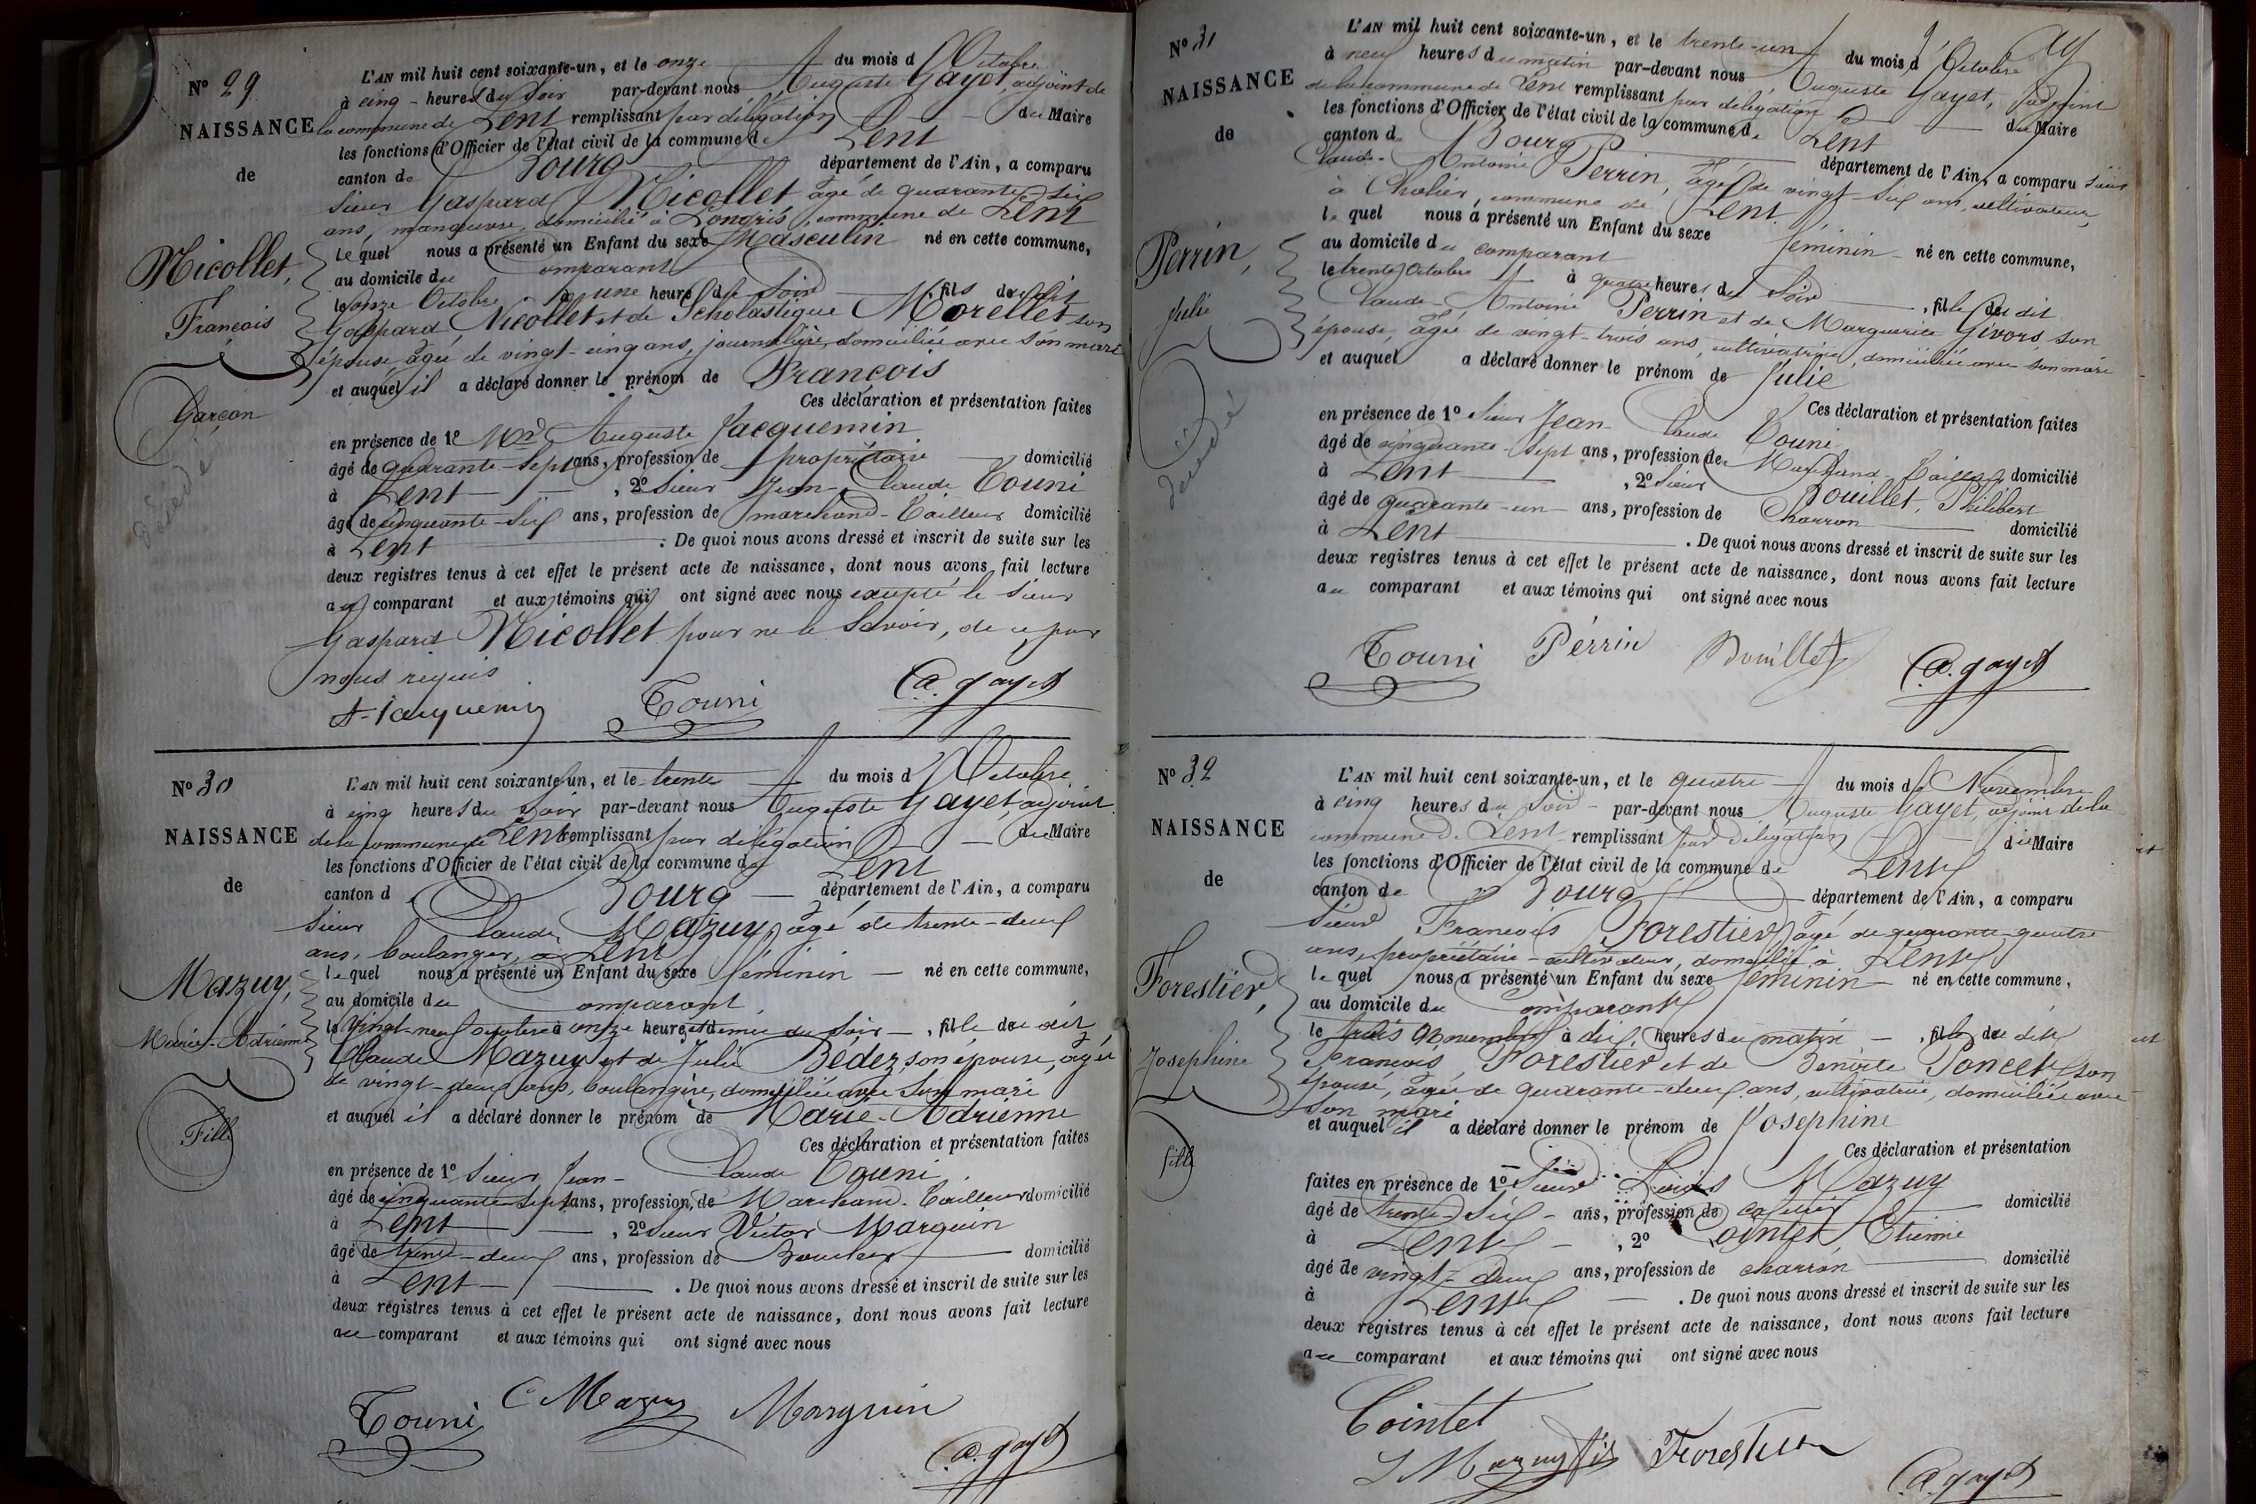 Nº 29
NAISSANCE
de
Nicollet,
François
Garçon
décédé
L'AN mil huit cent soixante-un, et le onze du mois d'Octobre
à cinq heures du soir par-devant nous Auguste Gayet, adjoint de
la commune de Lent remplissant par délégation du Maire
les fonctions d'Officier de l'état civil de la commune de Lent
canton de Bourg département de l'Ain, a comparu
sieur Gaspard Nicollet âgé de quarante-six
ans, manœuvre, domicilié à Longris, commune de Lent
lequel nous a présenté un Enfant du sexe Masculin né en cette commune,
au domicile du comparant
le onze Octobre à une heure du soir, fils du dit
Gaspard Nicollet et de Scholastique Morellet son
épouse, âgée de vingt-cinq ans, journalière, domiciliée avec son mari
et auquel il a déclaré donner le prénom de François
Ces déclaration et présentation faites
en présence de 1º Mr Auguste Jacquemin
âgé de quarante-sept ans, profession de propriétaire domicilié
à Lent, 2º sieur Jean-Claude Touni
âgé de cinquante-six ans, profession de marchand-Tailleur domicilié
à Lent. De quoi nous avons dressé et inscrit de suite sur les
deux registres tenus à cet effet le présent acte de naissance, dont nous avons fait lecture
au comparant et aux témoins qui ont signé avec nous excepté le sieur
Gaspard Nicollet pour ne le savoir, de ce par
nous requis
A. Jacquemin Touni A. gayet
Nº 30
NAISSANCE
de
Mazuy,
Marie-Adrienne
Fille
L'AN mil huit cent soixante-un, et le trente du mois d'Octobre
à cinq heures du soir par-devant nous Auguste Gayet, adjoint
de la commune de Lent remplissant par délégation du Maire
les fonctions d'Officier de l'état civil de la commune de Lent
canton d Bourg département de l'Ain, a comparu
sieur Claude Mazuy âgé de trente-deux
ans, boulanger, à Lent
lequel nous a présenté un Enfant du sexe féminin né en cette commune,
au domicile du comparant
le vingt-neuf octobre à onze heures et demie du soir, fille du dit
Claude Mazuy et de Julie Bedez, son épouse, âgée
de vingt-deux ans, boulangère, domiciliée avec son mari
et auquel il a déclaré donner le prénom de Marie-Adrienne
Ces déclaration et présentation faites
en présence de 1º sieur Jean-Claude Touni
âgé de cinquante-sept ans, profession de Marchand-Tailleur domicilié
à Lent, 2º sieur Victor Marguin
âgé de trente-deux ans, profession de Boucher domicilié
à Lent. De quoi nous avons dressé et inscrit de suite sur les
deux registres tenus à cet effet le présent acte de naissance, dont nous avons fait lecture
au comparant et aux témoins qui ont signé avec nous
Touni C Mazuy Marguin
A. gayet
Nº 31
NAISSANCE
de
Perrin,
Julie
décédé
L'AN mil huit cent soixante-un, et le trente-un du mois d'Octobre
à neuf heures du matin par-devant nous Auguste Gayet, adjoint
de la commune de Lent remplissant par délégation du Maire
les fonctions d'Officier de l'état civil de la commune de Lent
canton de Bourg département de l'Ain, a comparu sieur
Claude-Antoine Perrin, âgé de vingt-six ans, cultivateur,
à Cholier, commune de Lent
lequel nous a présenté un Enfant du sexe féminin né en cette commune,
au domicile du comparant
le trente Octobre à quatre heures du soir, fille du dit
Claude-Antoine Perrin et de Marguerite Givors son
épouse, âgée de vingt-trois ans, cultivatrice, domiciliée avec son mari
et auquel a déclaré donner le prénom de Julie
Ces déclaration et présentation faites
en présence de 1º sieur Jean-Claude Touni
âgé de cinquante-sept ans, profession de Marchand-Tailleur domicilié
à Lent, 2º sieur Bouillet, Philibert
âgé de quarante-un ans, profession de Charron domicilié
à Lent. De quoi nous avons dressé et inscrit de suite sur les
deux registres tenus à cet effet le présent acte de naissance, dont nous avons fait lecture
au comparant et aux témoins qui ont signé avec nous
Touni Perrin Bouillet A. gayet
Nº 32
NAISSANCE
de
Forestier,
Josephine
fille
L'AN mil huit cent soixante-un, et le quatre du mois de Novembre
à cinq heures du soir par-devant nous Auguste Gayet, adjoint de la
commune de Lent remplissant par délégation du Maire
les fonctions d'Officier de l'état civil de la commune de Lent
canton de Bourg département de l'Ain, a comparu
sieur François Forestier âgé de quarante-quatre
ans, propriétaire-cultivateur, domicilié à Lent
lequel nous a présenté un Enfant du sexe féminin né en cette commune,
au domicile du comparant
le trois Novembre à dix heures du matin, fille du dit
François Forestier et de Benoite Poncet son
épouse, âgée de quarante-deux ans, cultivatrice, domiciliée avec
son mari
et auquel il a déclaré donner le prénom de Josephine
Ces déclaration et présentation
faites en présence de 1º Sieur Louis Mazuy
âgé de trente-six ans, profession de cafetier domicilié
à Lent, 2º Cointet Etienne
âgé de vingt-deux ans, profession de charron domicilié
à Lent. De quoi nous avons dressé et inscrit de suite sur les
deux registres tenus à cet effet le présent acte de naissance, dont nous avons fait lecture
au comparant et aux témoins qui ont signé avec nous
Cointet
L Mazuy fils Forestier
A. gayet